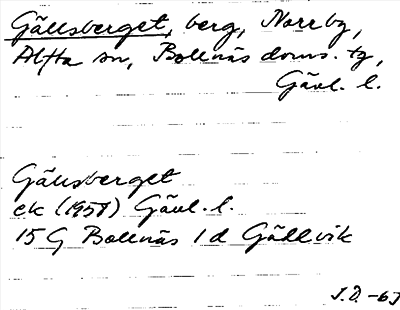 Gällsberget, berg, Norrby,
Alfta sn, Bollnäs doms. tg,
Gävl. l.
Gällsberget
ek (1957) Gävl. l.
15 G Bollnäs 1 d Gällvik
J.D. -63